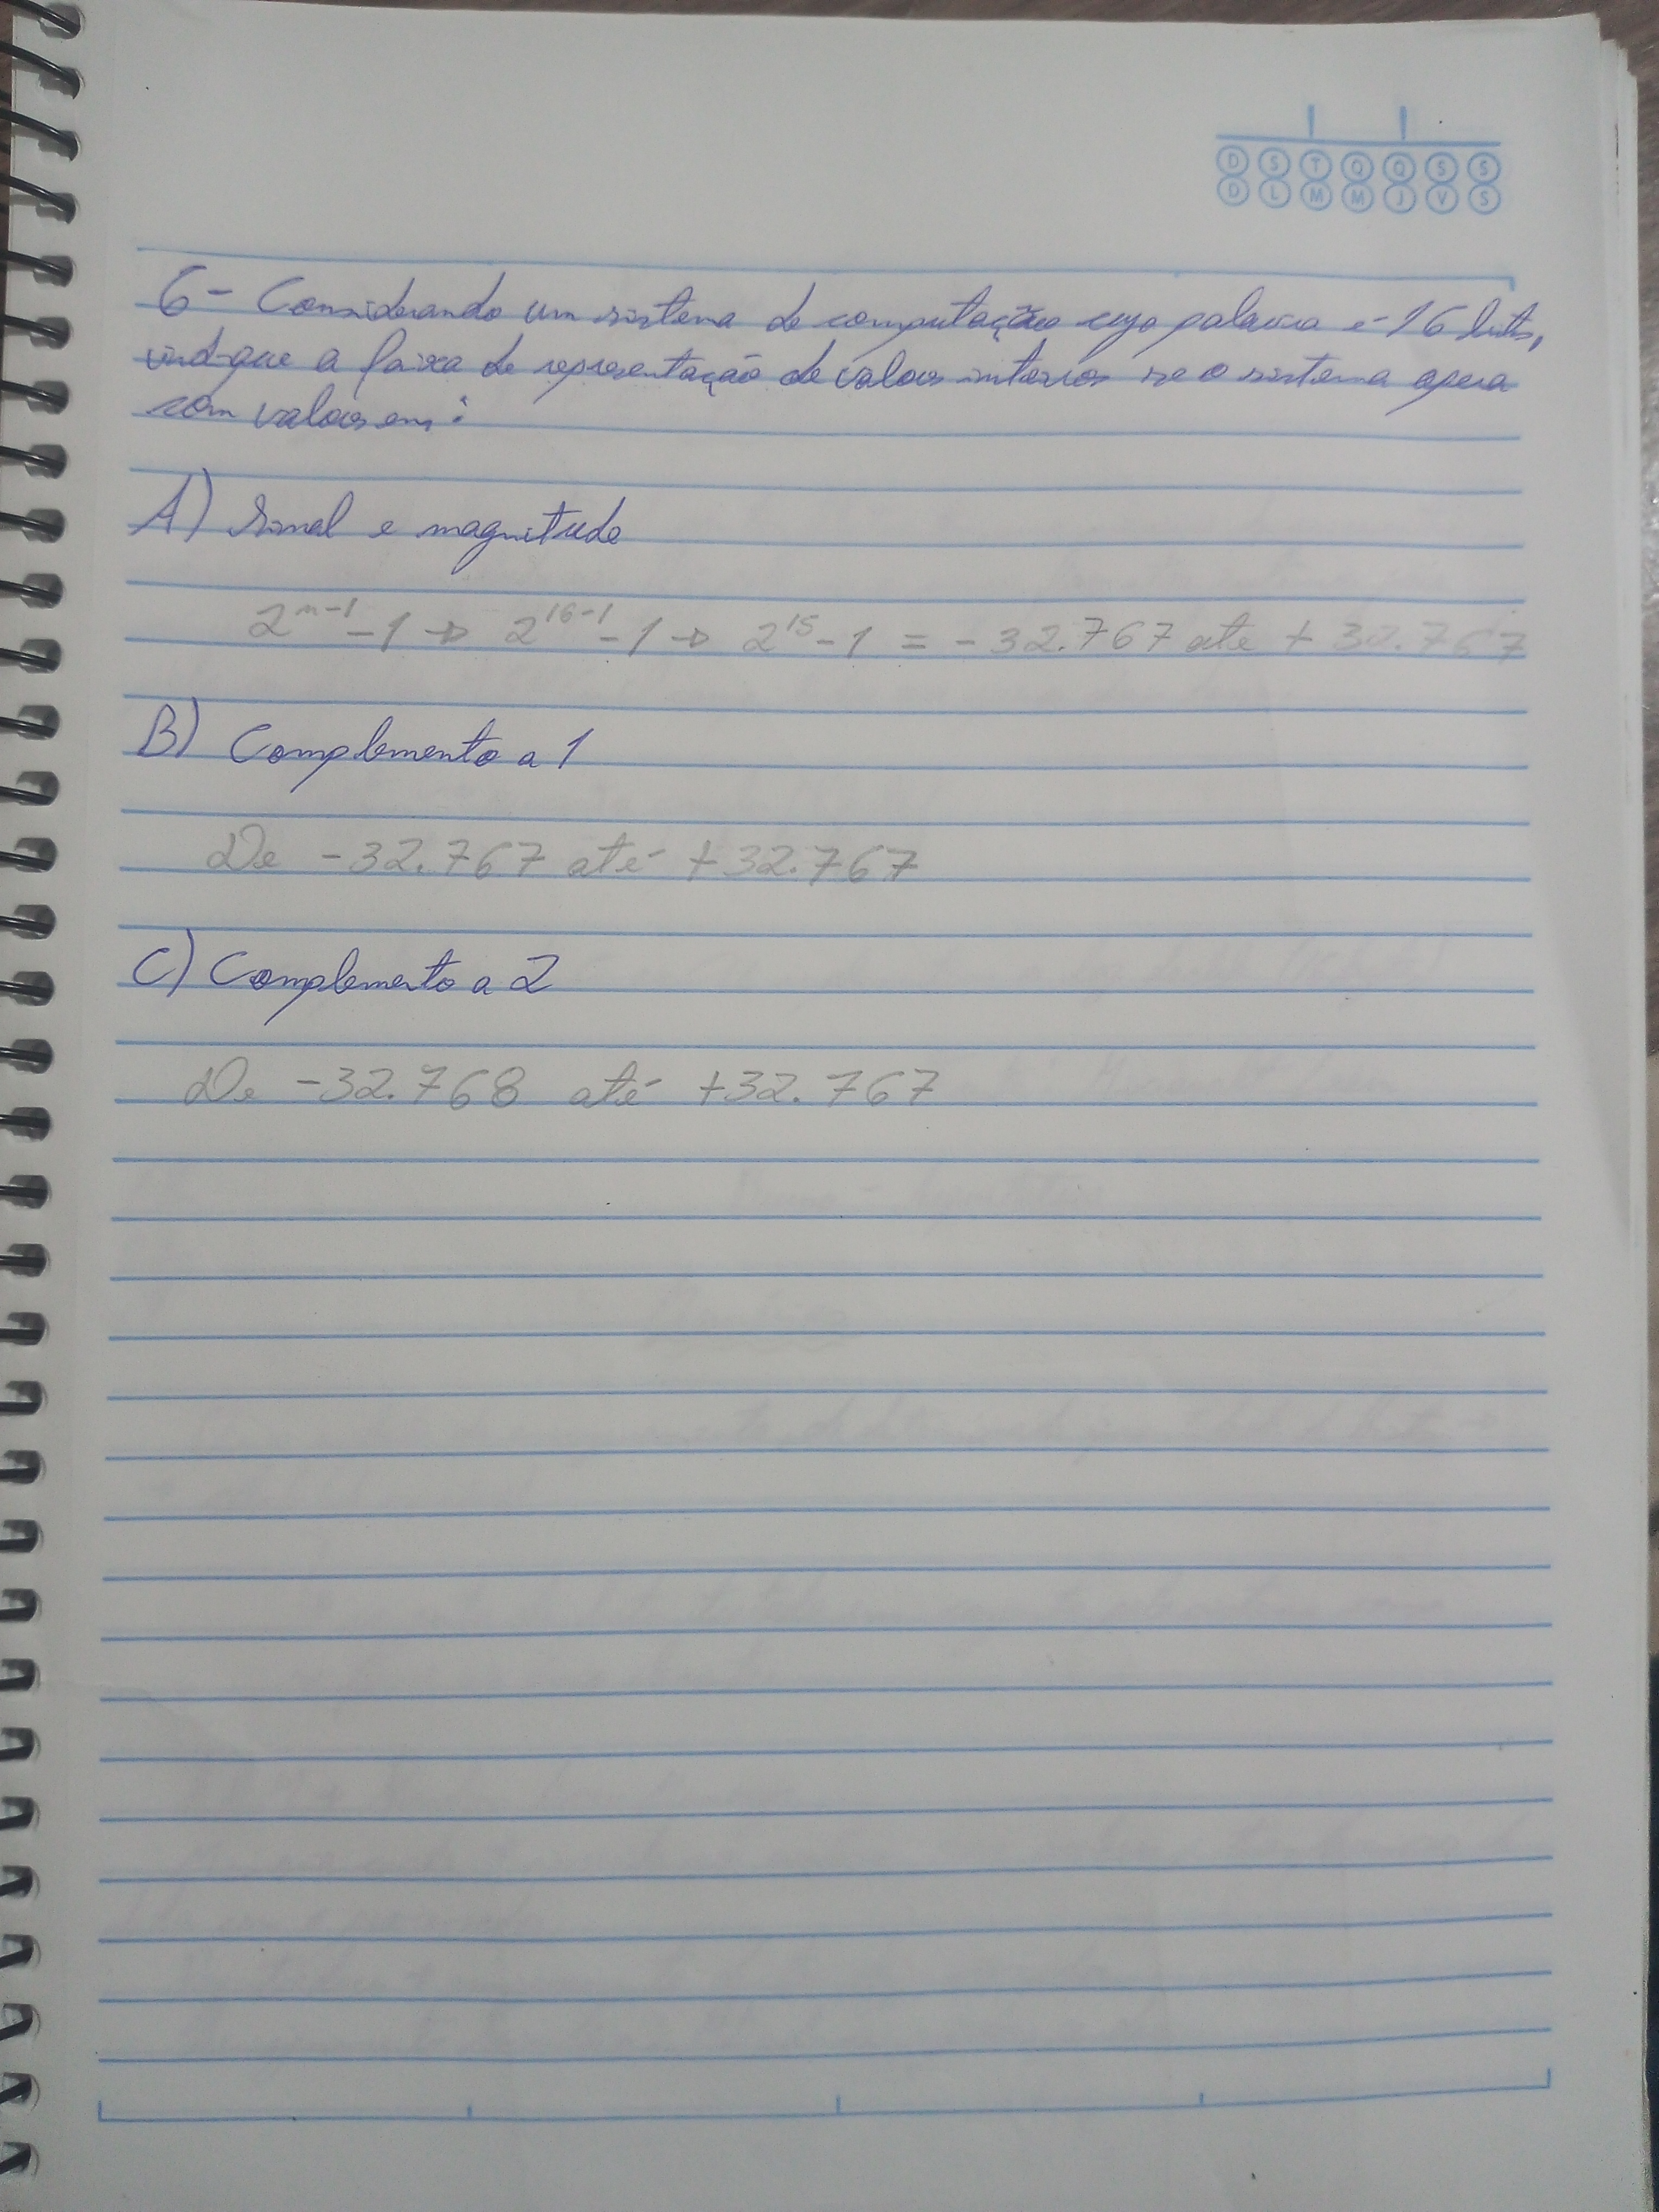 D S T Q Q S S
D L M M J V S
6 - Considerando um sistema de computação cujo palavra é 16 bits,
indique a faixa de representação de valores inteiros se o sistema opera
com valores em:
A) Sinal e magnitude
2^n-1 - 1 → 2^16-1 - 1 → 2^15 - 1 = - 32.767 até + 32.767
B) Complemento a 1
De - 32.767 até + 32.767
C) Complemento a 2
De - 32.768 até + 32.767